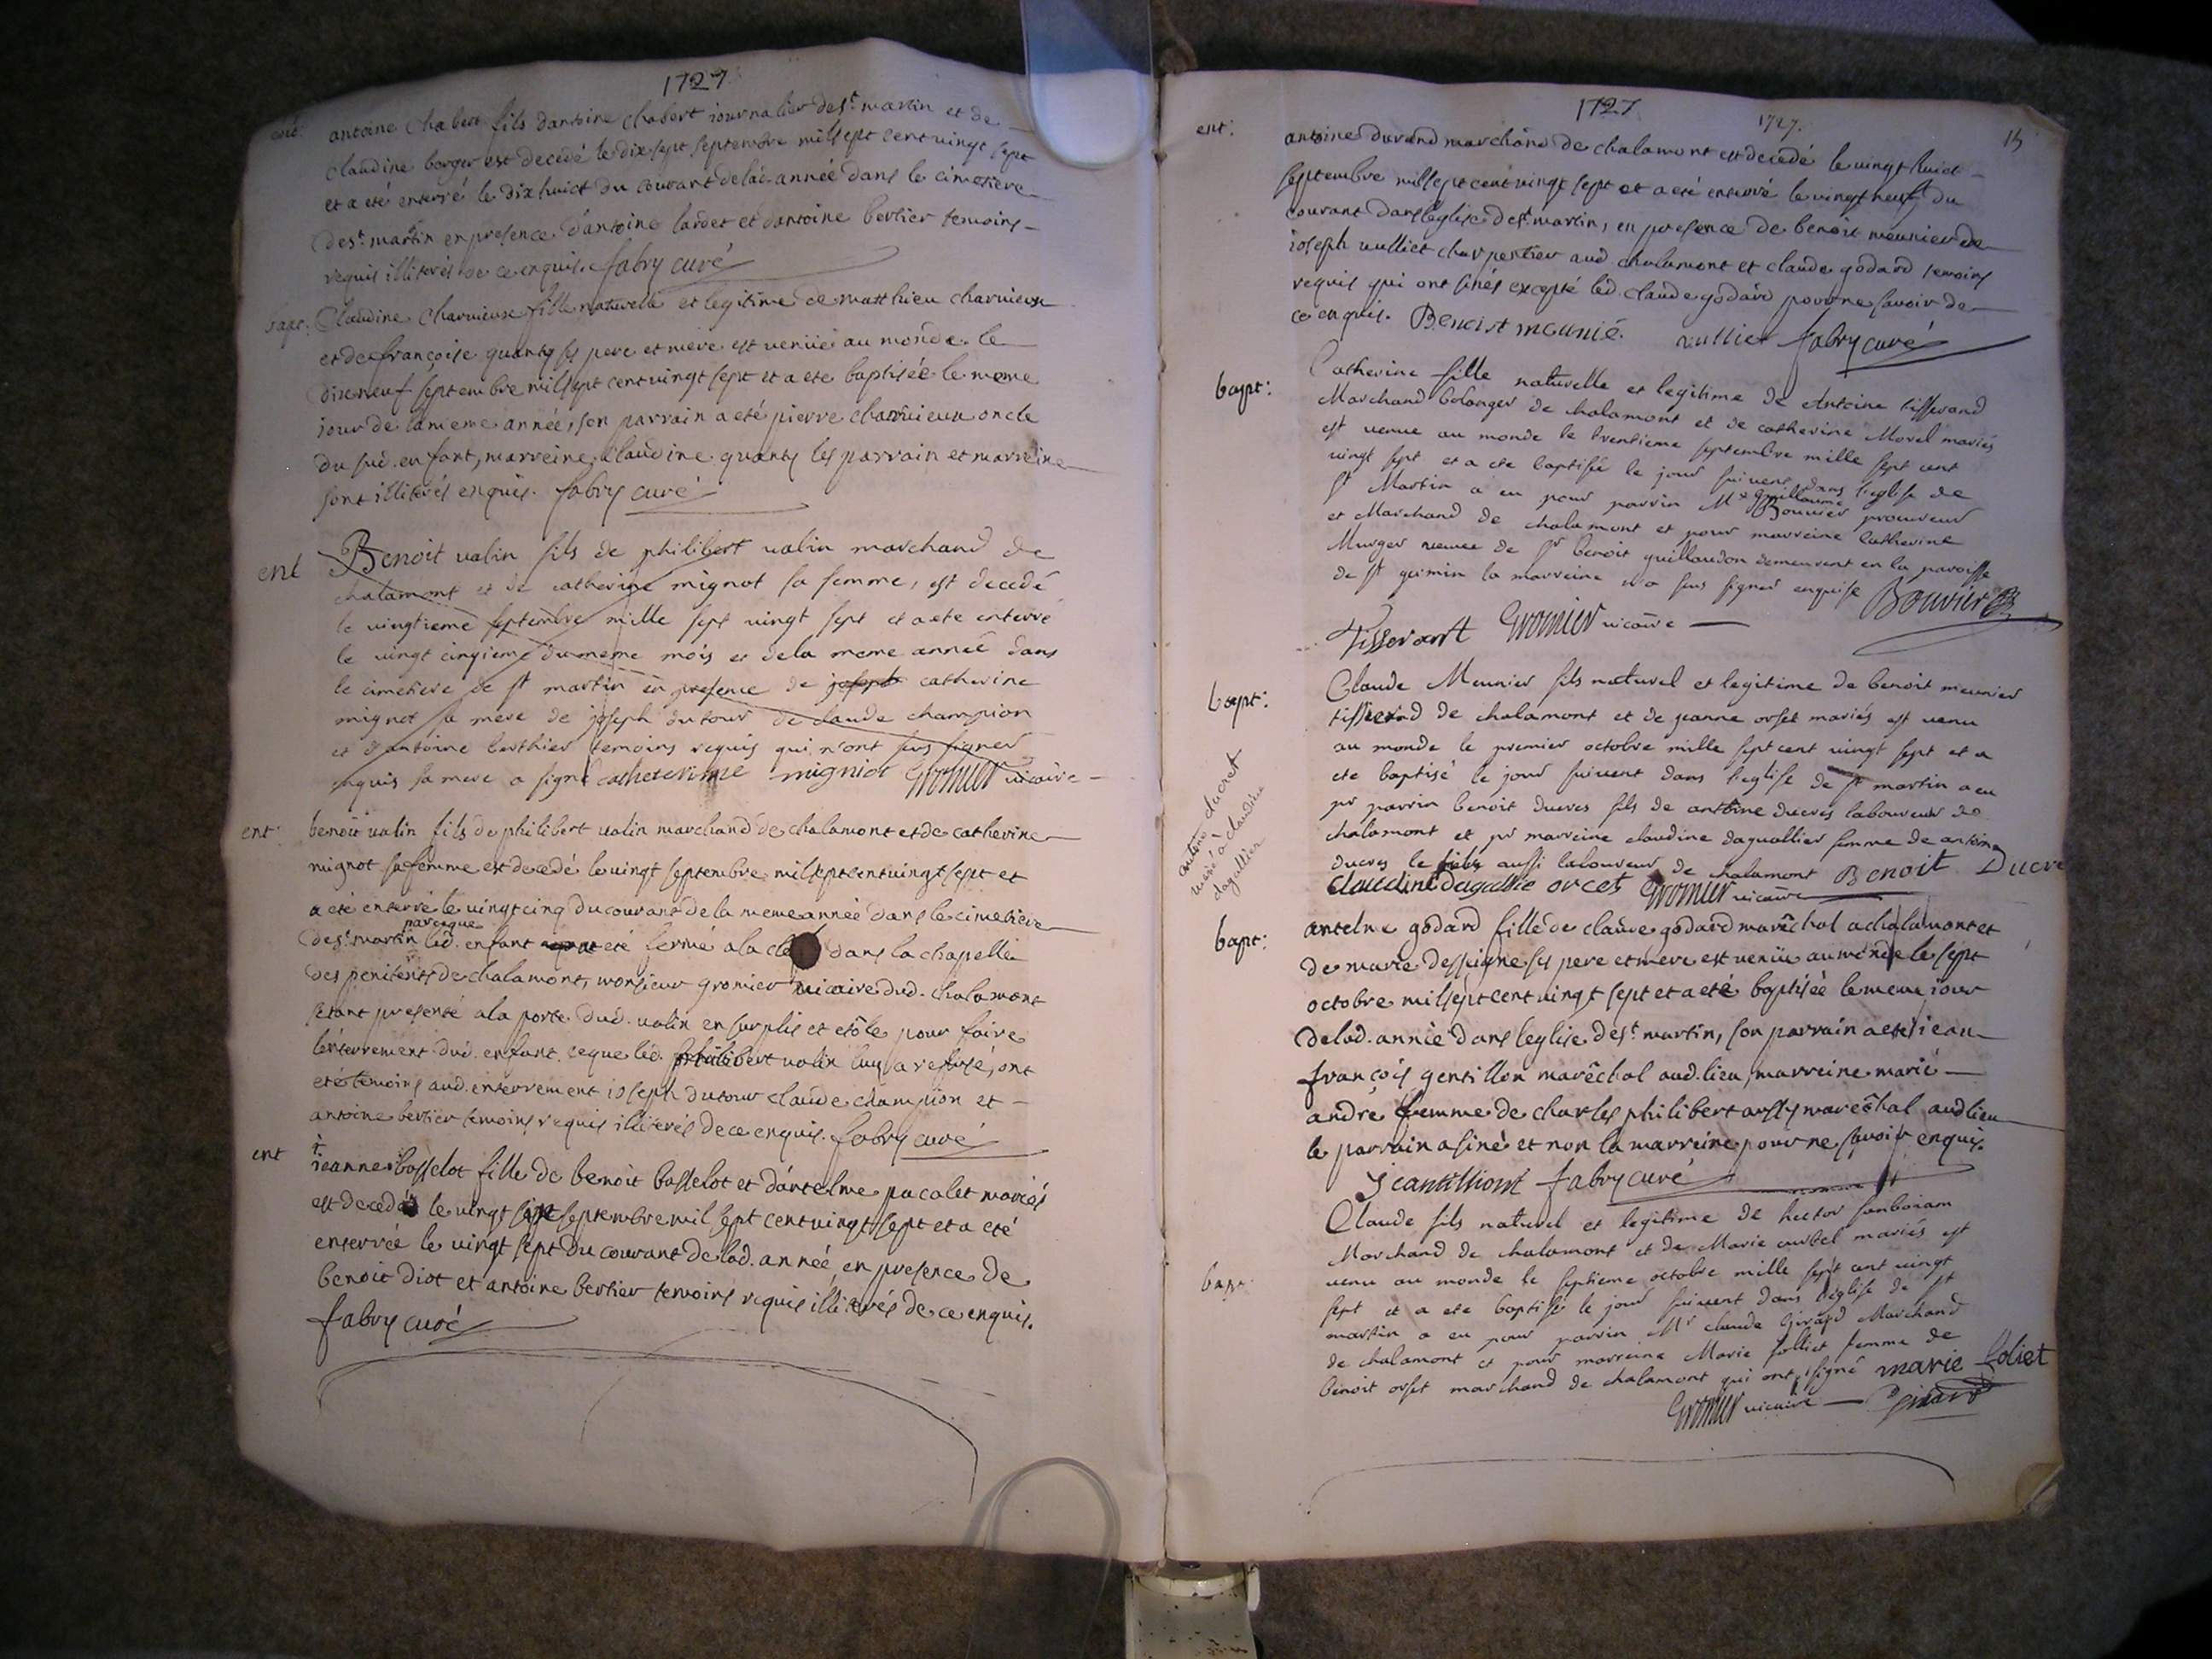 1727
ent: antoine Chabert fils dantoine chabert journalier de st martin et de
claudine berger est decedé le dix sept septembre mil sept cent vingt sept
et a eté enterré le dix huict du courant de lad. année dans le cimetiere
de st martin en presence d'antoine lardet et d'antoine bertier temoins
requis illiterés de ce enquis. fabry curé
bapt: Claudine Charvieux fille naturelle et legitime de matthieu charvieux
et de françoise quanty ses pere et mere est venüe au monde le
dix neuf septembre mil sept cent vingt sept et a ete baptisée le meme
jour de la meme année, son parrain a eté pierre charvieux oncle
du sud. enfant, marreine claudine quanty les parrain et marreine
sont illiterés enquis. fabry curé
ent Benoit valin fils de philibert valin marchand de
chalamont et de catherine mignot sa femme, est decedé
le vingtieme septembre mille sept vingt sept et a ete enterré
le vingt cinqieme du meme mois et de la meme année dans
le cimetiere de st martin en presence de joseph catherine
mignot sa mere de joseph dutour de claude champion
et d'antoine berthier temoins requis qui n'ont sus signer
enquis sa mere a signé catheterinne migniot Gromier vicaire
ent: benoit valin fils de philibert valin marchand de chalamont et de catherine
mignot sa femme est decedé le vingt septembre mil sept cent vingt sept et
a eté enterré le vingt cinq du courant de la meme année dans le cimetiere
parceque
de st martin led. enfant eté fermé a la clef dans la chapelle
des penitents de chalamont, monsieur gromier vicaire dud. chalamont
s'etant presenté a la porte dud. valin en surplis et etôle pour faire
l'enterrement dud. enfant, ce que led. philibert valin luy a refusé, ont
eté temoins aud. enterrement joseph dutour claude champion et
antoine bertier temoins requis illiterés de ce enquis. fabry curé
ent jeanne bosselot fille de benoit bosselot et d'antelme pacalet mariés
est decedée le vingt six septembre mil sept cent vingt sept et a eté
enterrée le vingt sept du courant de lad. année en presence de
benoit diot et antoine bertier temoins requis illiterés de ce enquis.
fabry curé
1727
1727.
15
ent: antoine durand marchand de chalamont est decedé le vingt huict
septembre mil sept cent vingt sept et a eté enterré le vingt neuf du
courant dans l'eglise de st martin, en presence de benoit meunier de
joseph vulliet charpentier aud. chalamont et claude godard temoins
requis qui ont sinés excepté led. claude godard pour ne savoir de
ce enquis. Benoist meunié. vulliet fabry curé
bapt: Catherine fille naturelle et legitime de Antoine tisserand
Marchand bolanger de chalamont et de catherine Morel mariés
est venue au monde le trentieme septembre mille sept cent
vingt sept et a ete baptisée le jour suivent dans l'eglise de
st Martin a eu pour parrin Mr guillaume Bouvier procureur
et Marchand de chalamont et pour marreine Catherine
Murger veuve de sr benoit guillaudon demeurent en la paroisse
de st germin la marreine n'a sus signer enquise Bouvier
Tisserant Gromier vicaire
bapt: Claude Meunier fils naturel et legitime de benoit meunier
tisserand de chalamont et de jeanne orset mariés est venu
au monde le premier octobre mille sept cent vingt sept et a
ete baptisé le jour suivent dans l'eglise de st martin a eu
pr parrin benoit ducres fils de antoine ducres laboureur de
chalamont et pr marreine claudine daguallier femme de antoine
ducres le aussi laboureur de chalamont Benoit Ducre
claudine dagallie orcet Gromier vicaire
antoine ducret
marié à claudine
dagallier
bapt: antelme godard fille de claude godard marêchal a chalamont et
de marie desseigne ses pere et mere est venüe au monde le sept
octobre mil sept cent vingt sept et a eté baptisée le meme jour
de lad. année dans l'eglise de st martin, son parrain a eté jean
françois gentillon marêchal aud. lieu, marreine marie
andré femme de charles philibert marêchal aud lieu
le parrain a siné et non la marreine pour ne savoir enquis.
fabry curé
bapt: Claude fils naturel et legitime de hector
Marchand de chalamont et de Marie mariés est
venu au monde le septieme octobre mille sept cent vingt
sept et a ete baptisé le jour suivent dans l'eglise de st
martin a eu pour parrin Mr claude Girard Marchand
de chalamont et pour marreine Marie folliet femme de
benoit orset marchand de chalamont qui ont signé marie foliet
Gromier vicaire Girard